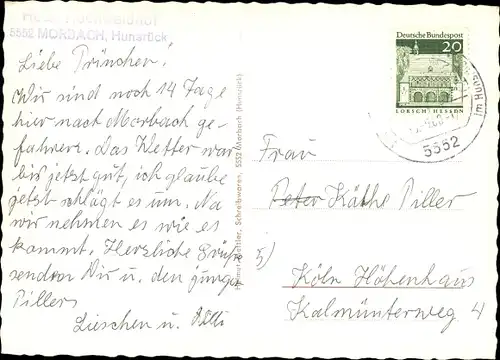 5552 MORBACH, Hunsrück
Liebe
Wir sind noch 14 Tage
hier nach Morbach ge-
fahren. Das Wetter war
bis jetzt gut, ich glaube
jetzt schlägt es um. Na
wir nehmen es wie es
kommt. Herzliche Grüße
sendet Dir u. den jungen
Pillers
Lieschen u. Willi
Schreibwaren, 5552 Morbach (Hunsrück)
Deutsche Bundespost
20
LORSCH/HESSEN
5552
Frau
Peter Käthe Piller
5)
Köln Höhenhaus
Kalmünterweg 4